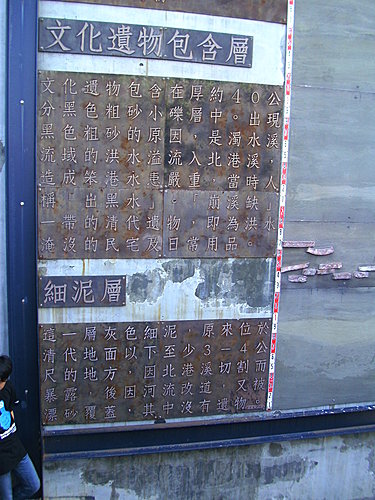 文化遺物包含層
文化遺物包含在厚約40公
分黑色粗砂小礫層中。出現
黑色粗砂的原因,是濁水溪
流域的洪水溢流入北港溪,
造成笨港水患嚴重,當時人
稱「黑水」。「崩溪缺」
一帶的清代遺物,即為洪水
淹沒的民宅及日常用品。
細泥層
這一層灰色細泥,原來位於
清代地面以下至少3—4公
尺的地方,因北港溪切割而
暴露,後因河流改道,又被
漂砂覆蓋,其中沒有遺物。